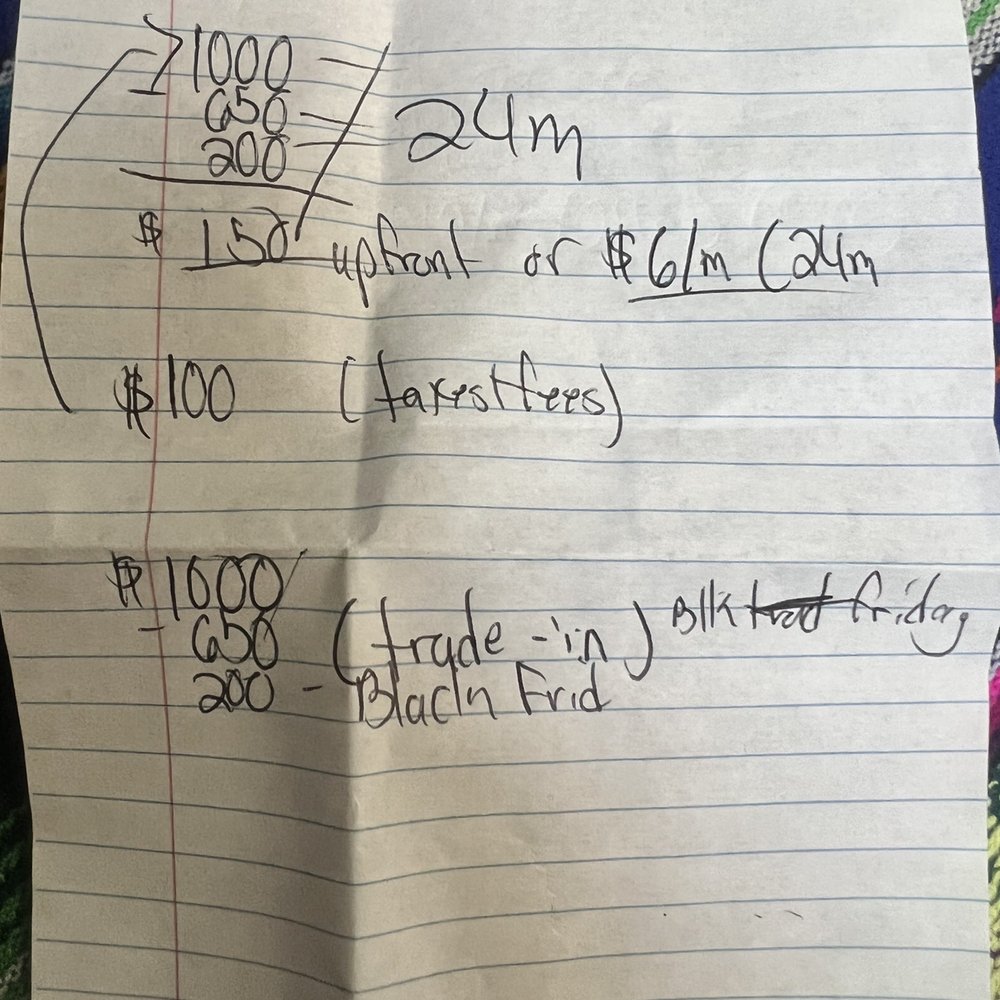 1000
650
200
24m
$ 150 upfront or $6/m (24m
$100 (taxes+fees)
$1000
- 650 (trade-in) Blk friday
200 - Black Frid